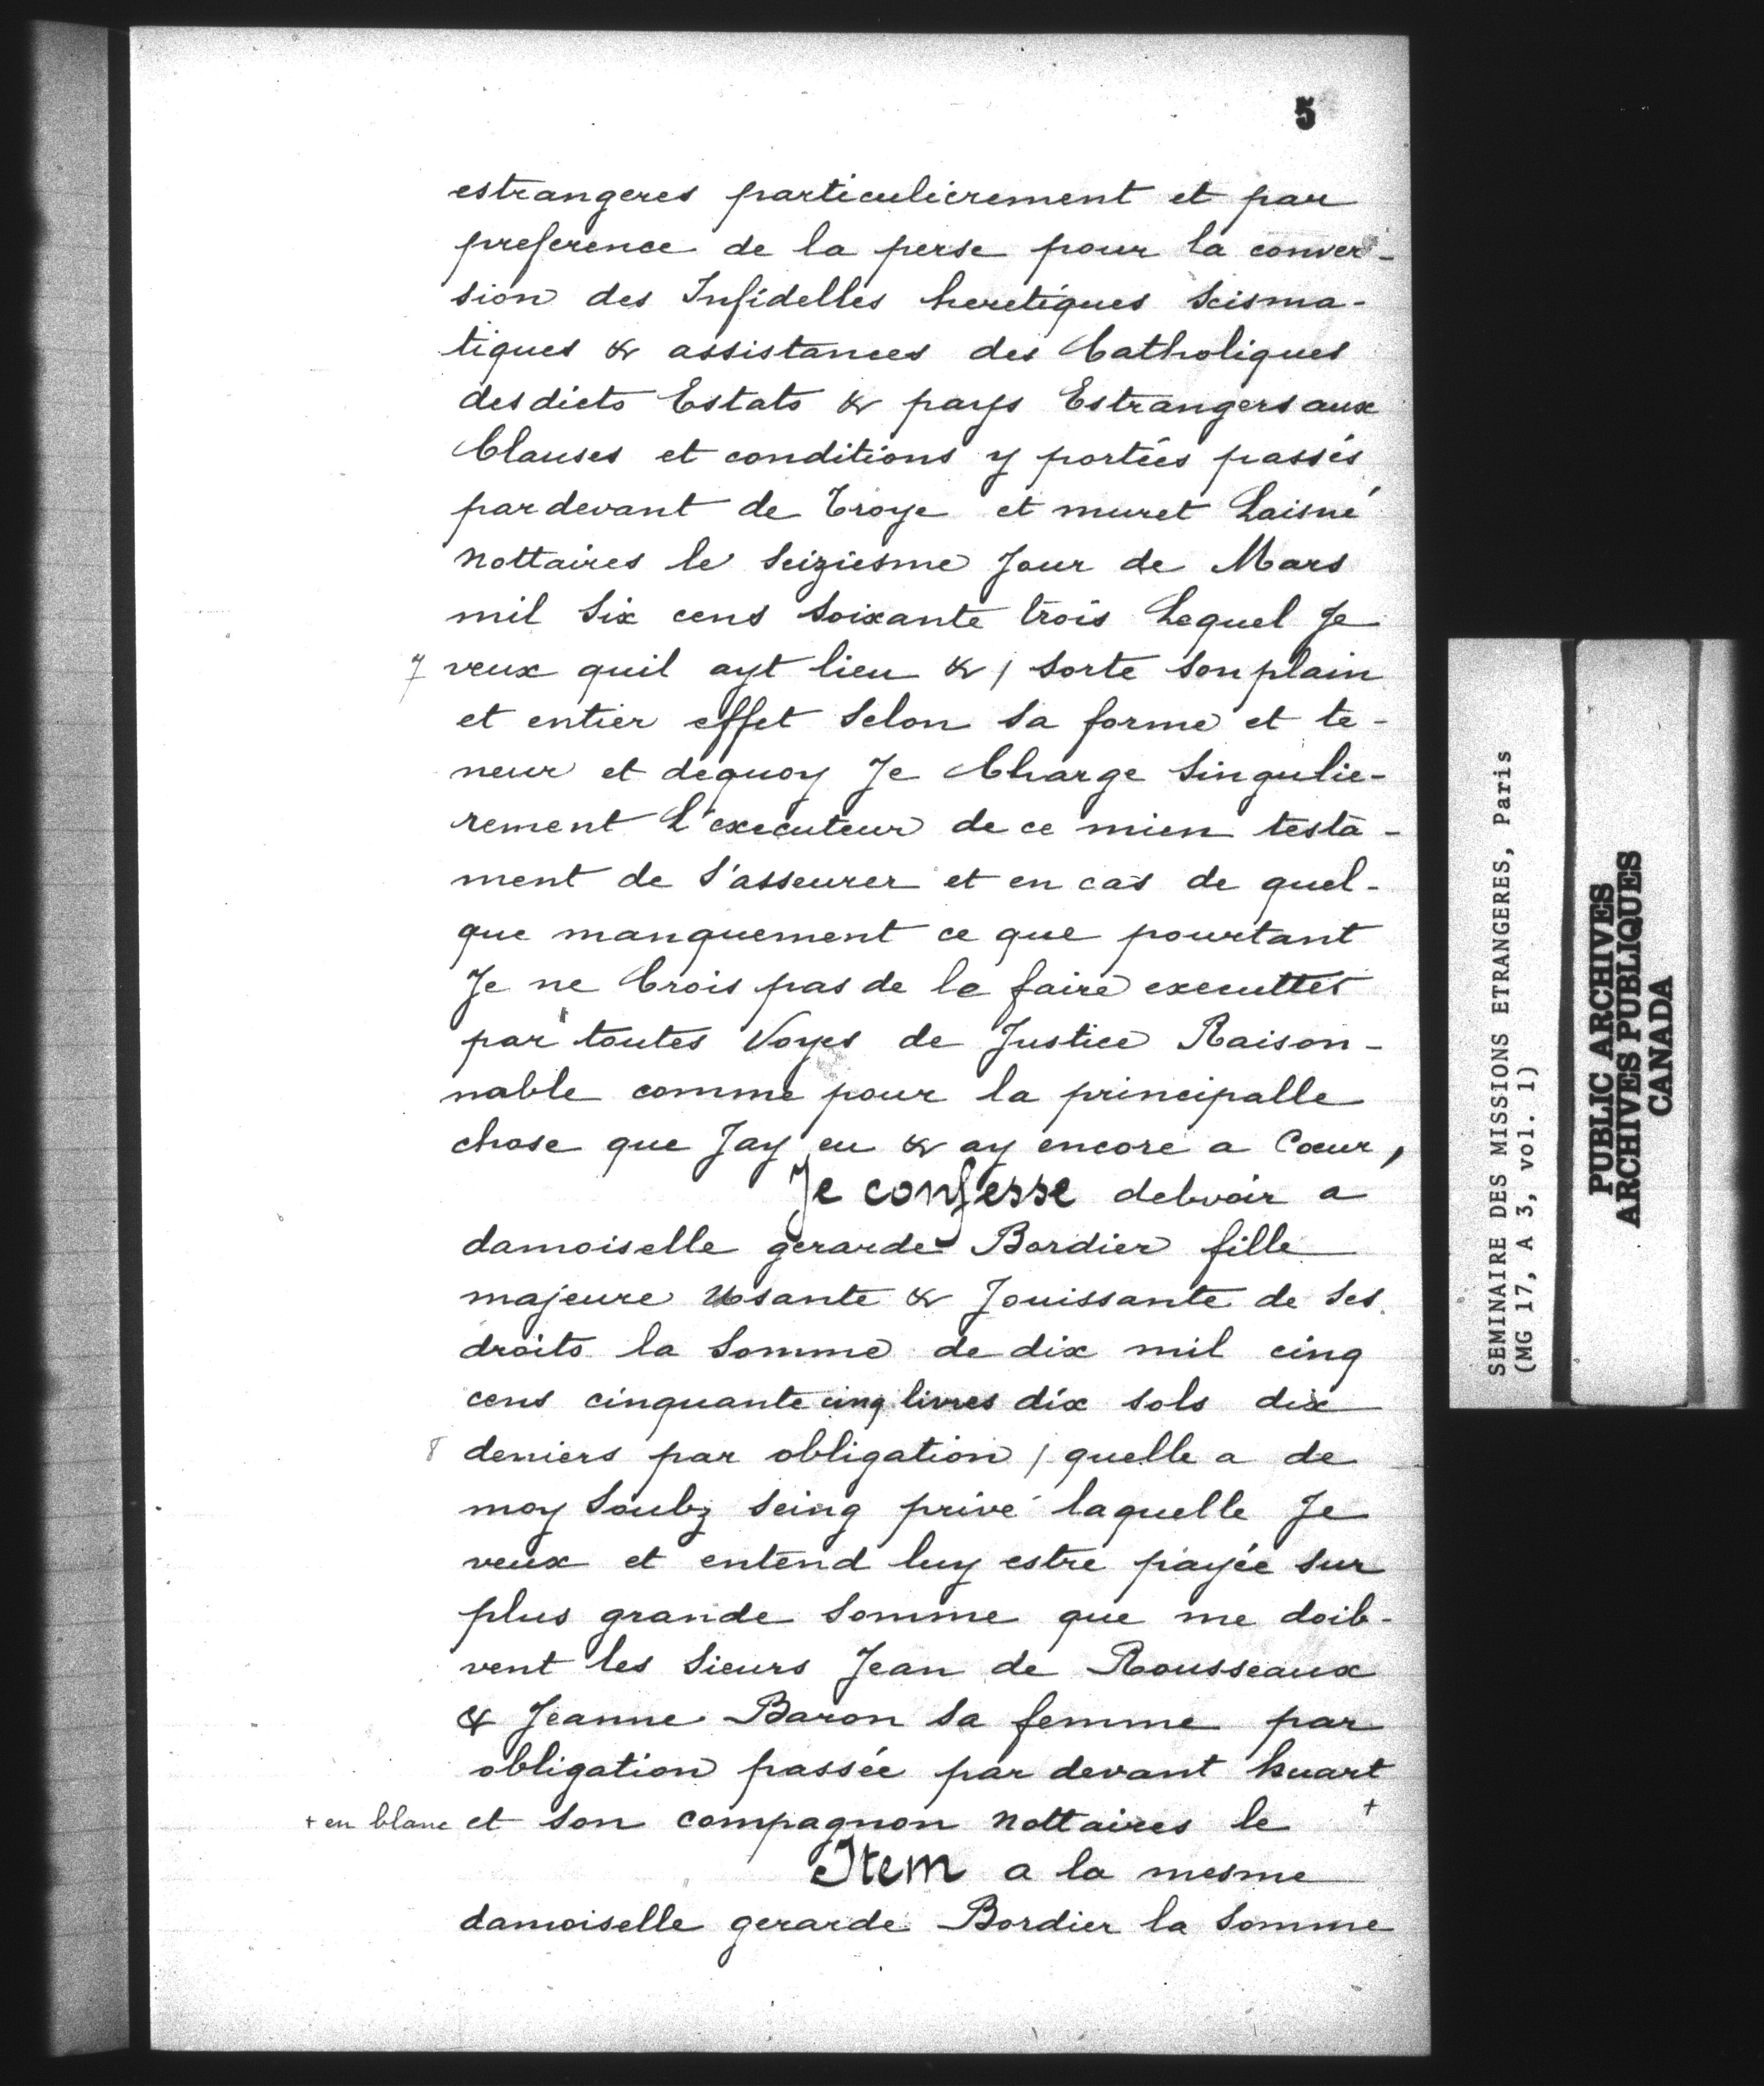 5
estrangeres particulierement et par
preference de la perse pour la conver-
sion des Infidelles heretiques Scisma-
tiques & assistances des Catholiques
desdicts Estats & pays Estrangers aux
Clauses et conditions y portées passés
pardevant de Troye et muret Laisné
Nottaires le Seiziesme Jour de Mars
mil Six cens Soixante trois Lequel Je
7 veux quil ayt lieu & / Sorte son plain
et entier effet Selon Sa forme et te-
neur et dequoy Je Charge Singulie-
rement L'executeur de ce mien testa-
ment de S'asseurer et en cas de quel-
que manquement ce que pourtant
Je ne Crois pas de le faire executter
par toutes Voyes de Justice Raison-
nable comme pour la principalle
chose que Jay eu & ay encore a Coeur,
Je confesse debvoir a
damoiselle gerarde Bordier fille
majeure Usante & Jouissante de Ses
droits la Somme de dix mil cinq
cens cinquante cinq livres dix sols dix
8 deniers par obligation / quelle a de
moy Soubz Seing privé laquelle Je
veux et entend luy estre payée Sur
plus grande Somme que me doib-
vent les Sieurs Jean de Rousseaux
& Jeanne Baron Sa femme par
obligation passée par devant huart
+ en blanc et Son compagnon Nottaires le +
Item a la mesme
damoiselle gerarde Bordier la Somme
SEMINAIRE DES MISSIONS ETRANGERES, Paris
(MG 17, A 3, vol. 1)
PUBLIC ARCHIVES
ARCHIVES PUBLIQUES
CANADA